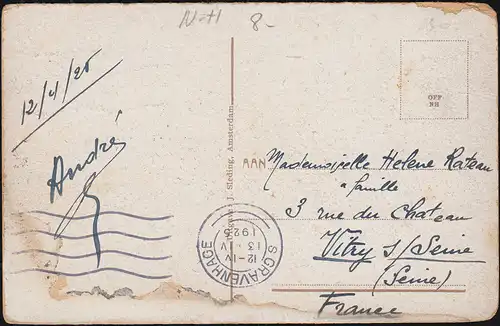 8-
12/4/25
André
J. Sleding, Amsterdam.
OPF
NH
AAN
Mademoiselle Helene Rateau
a famille
3 rue du Chateau
Vitry s/Seine
(Seine)
France
S GRAVENHAGE
12-IV
13.IV
1925